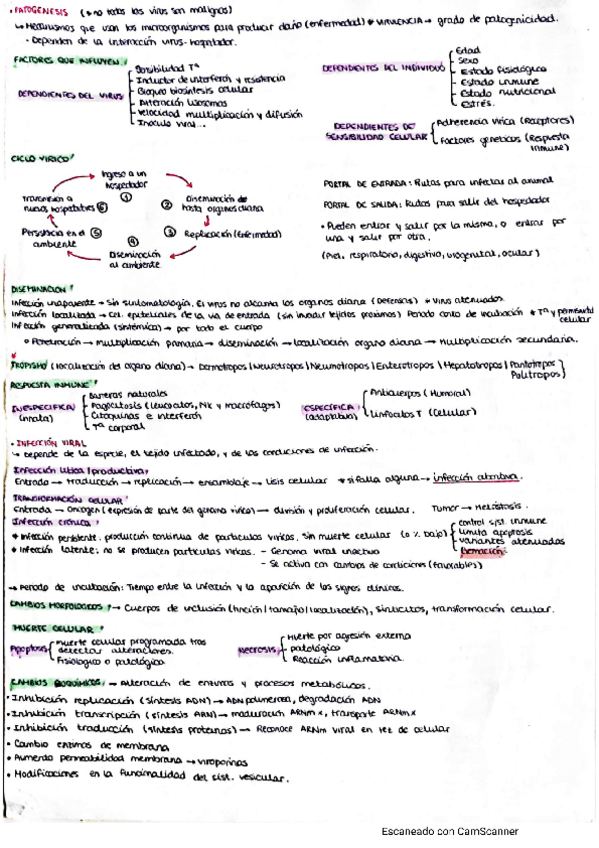 • PATOGENESIS (* no todos los virus son malignos)
↳ Mecanismos que usan los microorganismos para producir daño (enfermedad) * VIRULENCIA → grado de patogenicidad.
• Dependen de la interacción virus-hospedador.
FACTORES QUE INFLUYEN:
DEPENDIENTES DEL VIRUS
Sensibilidad Tª
Inductor de interferón y resistencia
Bloqueo biosíntesis celular
Alteración lisosomas
Velocidad multiplicación y difusión
Inóculo viral...
DEPENDIENTES DEL INDIVIDUO
Edad
Sexo
Estado fisiológico
Estado inmune
Estado nutricional
Estrés.
DEPENDIENTES DE SENSIBILIDAD CELULAR
Adherencia vírica (Receptores)
Factores genéticos (Respuesta inmune)
CICLO VÍRICO:
Ingreso a un hospedador ①
Diseminación ② hasta órganos diana
③ Replicación (Enfermedad)
④ Diseminación al ambiente
Persistencia en el ambiente ⑤
Transmisión a nuevos hospedadores ⑥
PORTAL DE ENTRADA: Rutas para infectar al animal
PORTAL DE SALIDA: Rutas para salir del hospedador
• Pueden entrar y salir por la misma, o entrar por
una y salir por otra.
(Piel, respiratorio, digestivo, urogenital, ocular)
DISEMINACIÓN:
Infección inaparente → Sin sintomatología. El virus no alcanza los órganos diana (Defensas) * Virus atenuados.
Infección localizada → Cel. epiteliales de la vía de entrada (sin invadir tejidos próximos) Periodo corto de incubación * Tª y permeabilidad celular
Infección generalizada (sistémica) → por todo el cuerpo
• Penetración → multiplicación primaria → diseminación → localización órgano diana → Multiplicación secundaria.
TROPISMO (localización del órgano diana) → Dermotropos | Neurotropos | Neumotropos | Enterotropos | Hepatotropos | Pantotropos Politropos
RESPUESTA INMUNE:
INESPECÍFICA (innata)
Barreras naturales
Fagocitosis (leucocitos, NK y macrófagos)
Citoquinas e interferón
Tª corporal
ESPECÍFICA: (adaptativa)
Anticuerpos (Humoral)
Linfocitos T (celular)
• INFECCIÓN VIRAL
↳ Depende de la especie, el tejido infectado, y de las condiciones de infección.
Infección lítica | productiva:
Entrada → traducción → replicación → ensamblaje → Lisis celular * si falla alguna → infección abortiva.
TRANSFORMACIÓN CELULAR:
Entrada → Oncogen (expresión de parte del genoma vírico) → división y proliferación celular. Tumor → Metástasis.
Infección crónica:
* Infección persistente: producción continua de partículas víricas. Sin muerte celular (o % bajo)
control sist. inmune
limita apoptosis
variantes atenuadas
* Infección latente: no se producen partículas víricas. - Genoma viral inactivo
- Se activa con cambios de condiciones (favorables)
→ Periodo de incubación: Tiempo entre la infección y la aparición de los signos clínicos.
CAMBIOS MORFOLÓGICOS: → Cuerpos de inclusión (tinción | tamaño | localización), sincitios, transformación celular.
MUERTE CELULAR:
Apoptosis
Muerte celular programada tras
detectar alteraciones.
Fisiológico o patológico
Necrosis
Muerte por agresión externa
patológico
Reacción inflamatoria.
CAMBIOS BIOQUÍMICOS: → Alteración de enzimas y procesos metabólicos.
• Inhibición replicación (síntesis ADN) → ADN polimerasa, degradación ADN
• Inhibición transcripción (síntesis ARN) → maduración ARNm x, transporte ARNm x
• Inhibición traducción (síntesis proteínas) → Reconoce ARNm viral en vez de celular
• Cambio enzimas de membrana
• Aumento permeabilidad membrana → viroporinas
• Modificaciones en la funcionalidad del sist. vesicular.
Escaneado con CamScanner